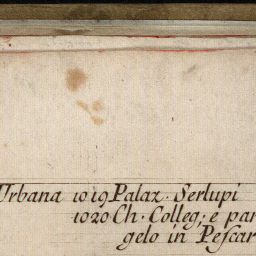 Urbana 1019 Palaz. Serlupi
1020 Ch. Colleg. e par
gelo in Peſcar